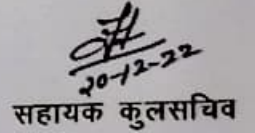 20-12-22
सहायक कुलसचिव